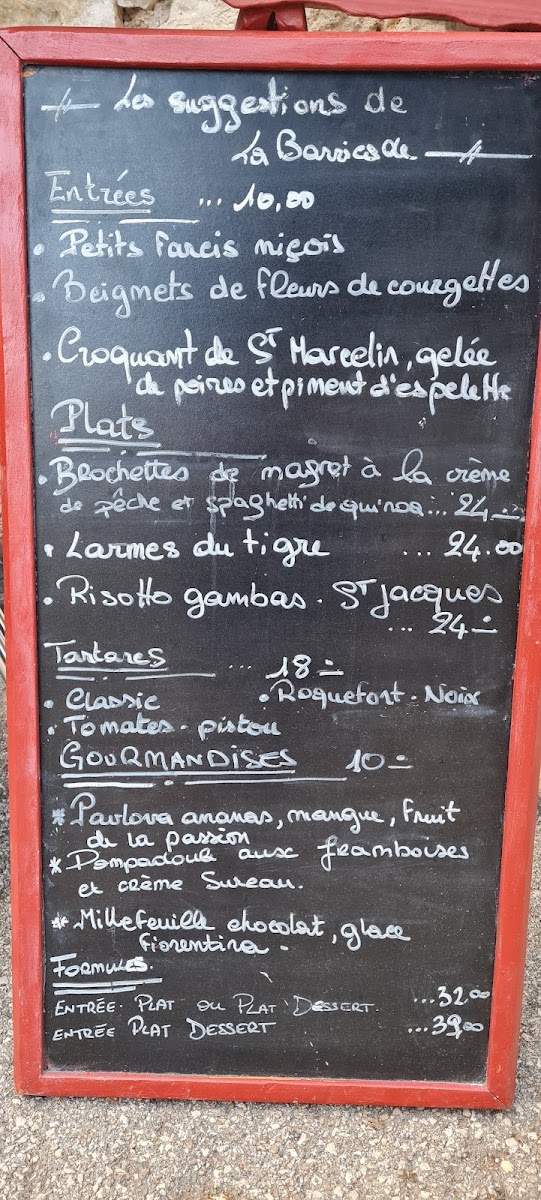 Les suggestions de
La Barricade
Entrées ... 10,00
• Petits farcis niçois
• Beignets de fleurs de courgettes
• Croquant de ST Marcelin, gelée
de poires et piment d'espelette
Plats
• Brochettes de magret à la crème
de pêche et spaghetti de quinoa ... 24.-
• Larmes du tigre ... 24.00
• Risotto gambas. ST Jacques
... 24.-
Tartares ... 18.-
• Classic • Roquefort - Noix
• Tomates - pistou
GOURMANDISES 10.-
* Pavlova ananas, mangue, fruit
de la passion
* Pompadour aux framboises
et crème Sureau.
* Millefeuille chocolat, glace
fiorentina -
FORMULES.
ENTRÉE. PLAT OU PLAT DESSERT. ...32,00
ENTRÉE PLAT DESSERT ...39,00